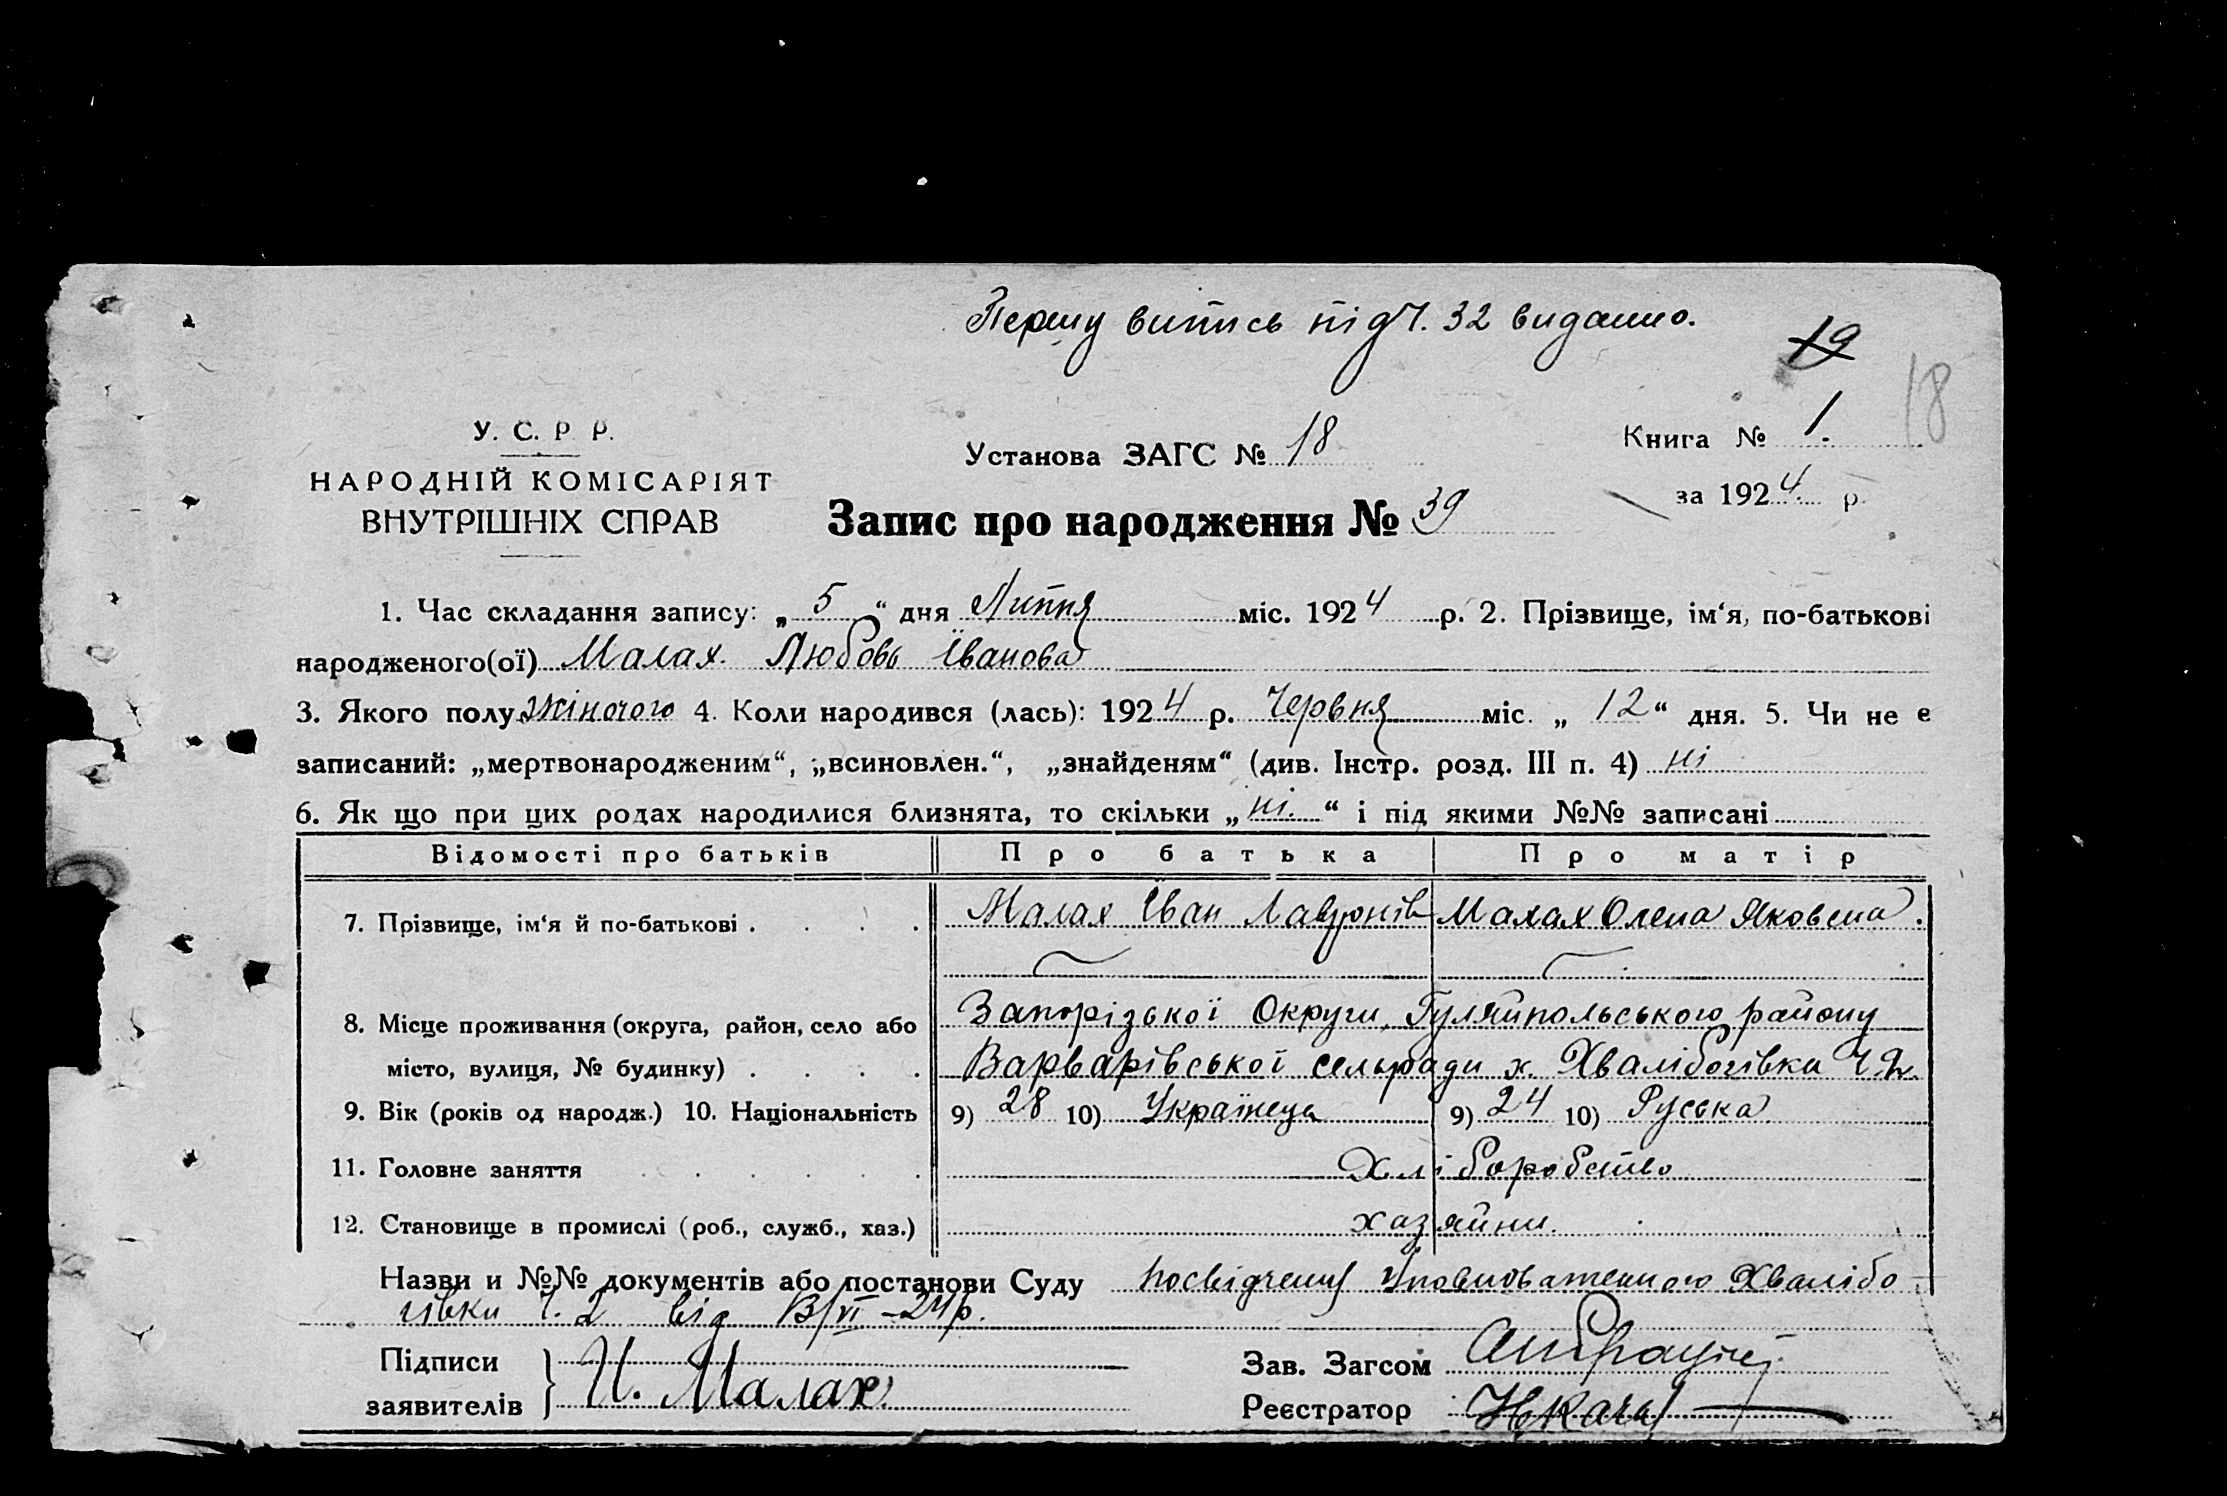 Першу випись під Ч. 32 видано.
19
18
У. С. Р. Р.
НАРОДНІЙ КОМІСАРІЯТ
ВНУТРІШНІХ СПРАВ
Установа ЗАГС № 18
Книга № 1.
за 1924 р.
Запис про народження № 39
1. Час складання запису: „ 5 “ дня Липня міс. 1924 р. 2. Прізвище, ім‘я, по-батькові
народженого(ої) Малах Любовь Іванова
3. Якого полу жіночого 4. Коли народився (лась): 1924 р. Червня міс. „ 12 “ дня. 5. Чи не є
записаний: „мертвонародженим“, „всиновлен.“, „знайденям“ (див. Інстр. розд. III п. 4) ні
6. Як що при цих родах народилися близнята, то скільки „ ні. “ і під якими №№ записані
Відомості про батьків Про батька Про матір
7. Прізвище, ім‘я й по-батькові . . . . Малах Іван Лаврентів Малах Олена Яковена.
8. Місце проживання (округа, район, село або Запорізької Округи, Гуляйпольського району
місто, вулиця, № будинку) . . . . Варварівської сельради х. Хвалібогівка
9. Вік (років од народж.) 10. Національність 9) 28 10) Українець 9) 24 10) Руська
11. Головне заняття . . . . . . Хліборобство
12. Становище в промислі (роб., служб., хаз.) хазяйни.
Назви и №№ документів або постанови Суду посвідчення Уповноваженного Хвалібо
гівки Ч. 2 від VI-24р.
Підписи
заявителів } И. Малах
Зав. Загсом
Реєстратор